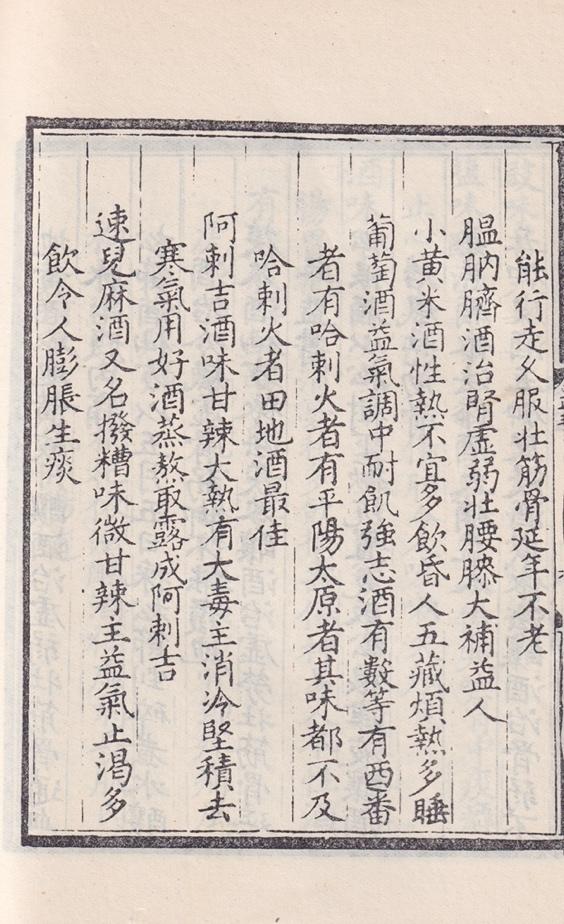 能行走乆服壮筋骨延年不老
腽肭臍酒治腎虚弱壮腰膝大補益人
小黄米酒性熱不宜多飲昏人五藏煩熱多睡
葡萄酒益氣調中耐飢強志酒有數等有西番
者有哈剌火者有平陽太原者其味都不及
哈剌火者田地酒最佳
阿剌吉酒味甘辣大熱有大毒主消冷堅積去
寒氣用好酒蒸熬取露成阿剌吉
速兒麻酒又名撥糟味微甘辣主益氣止渴多
飲令人膨脹生痰